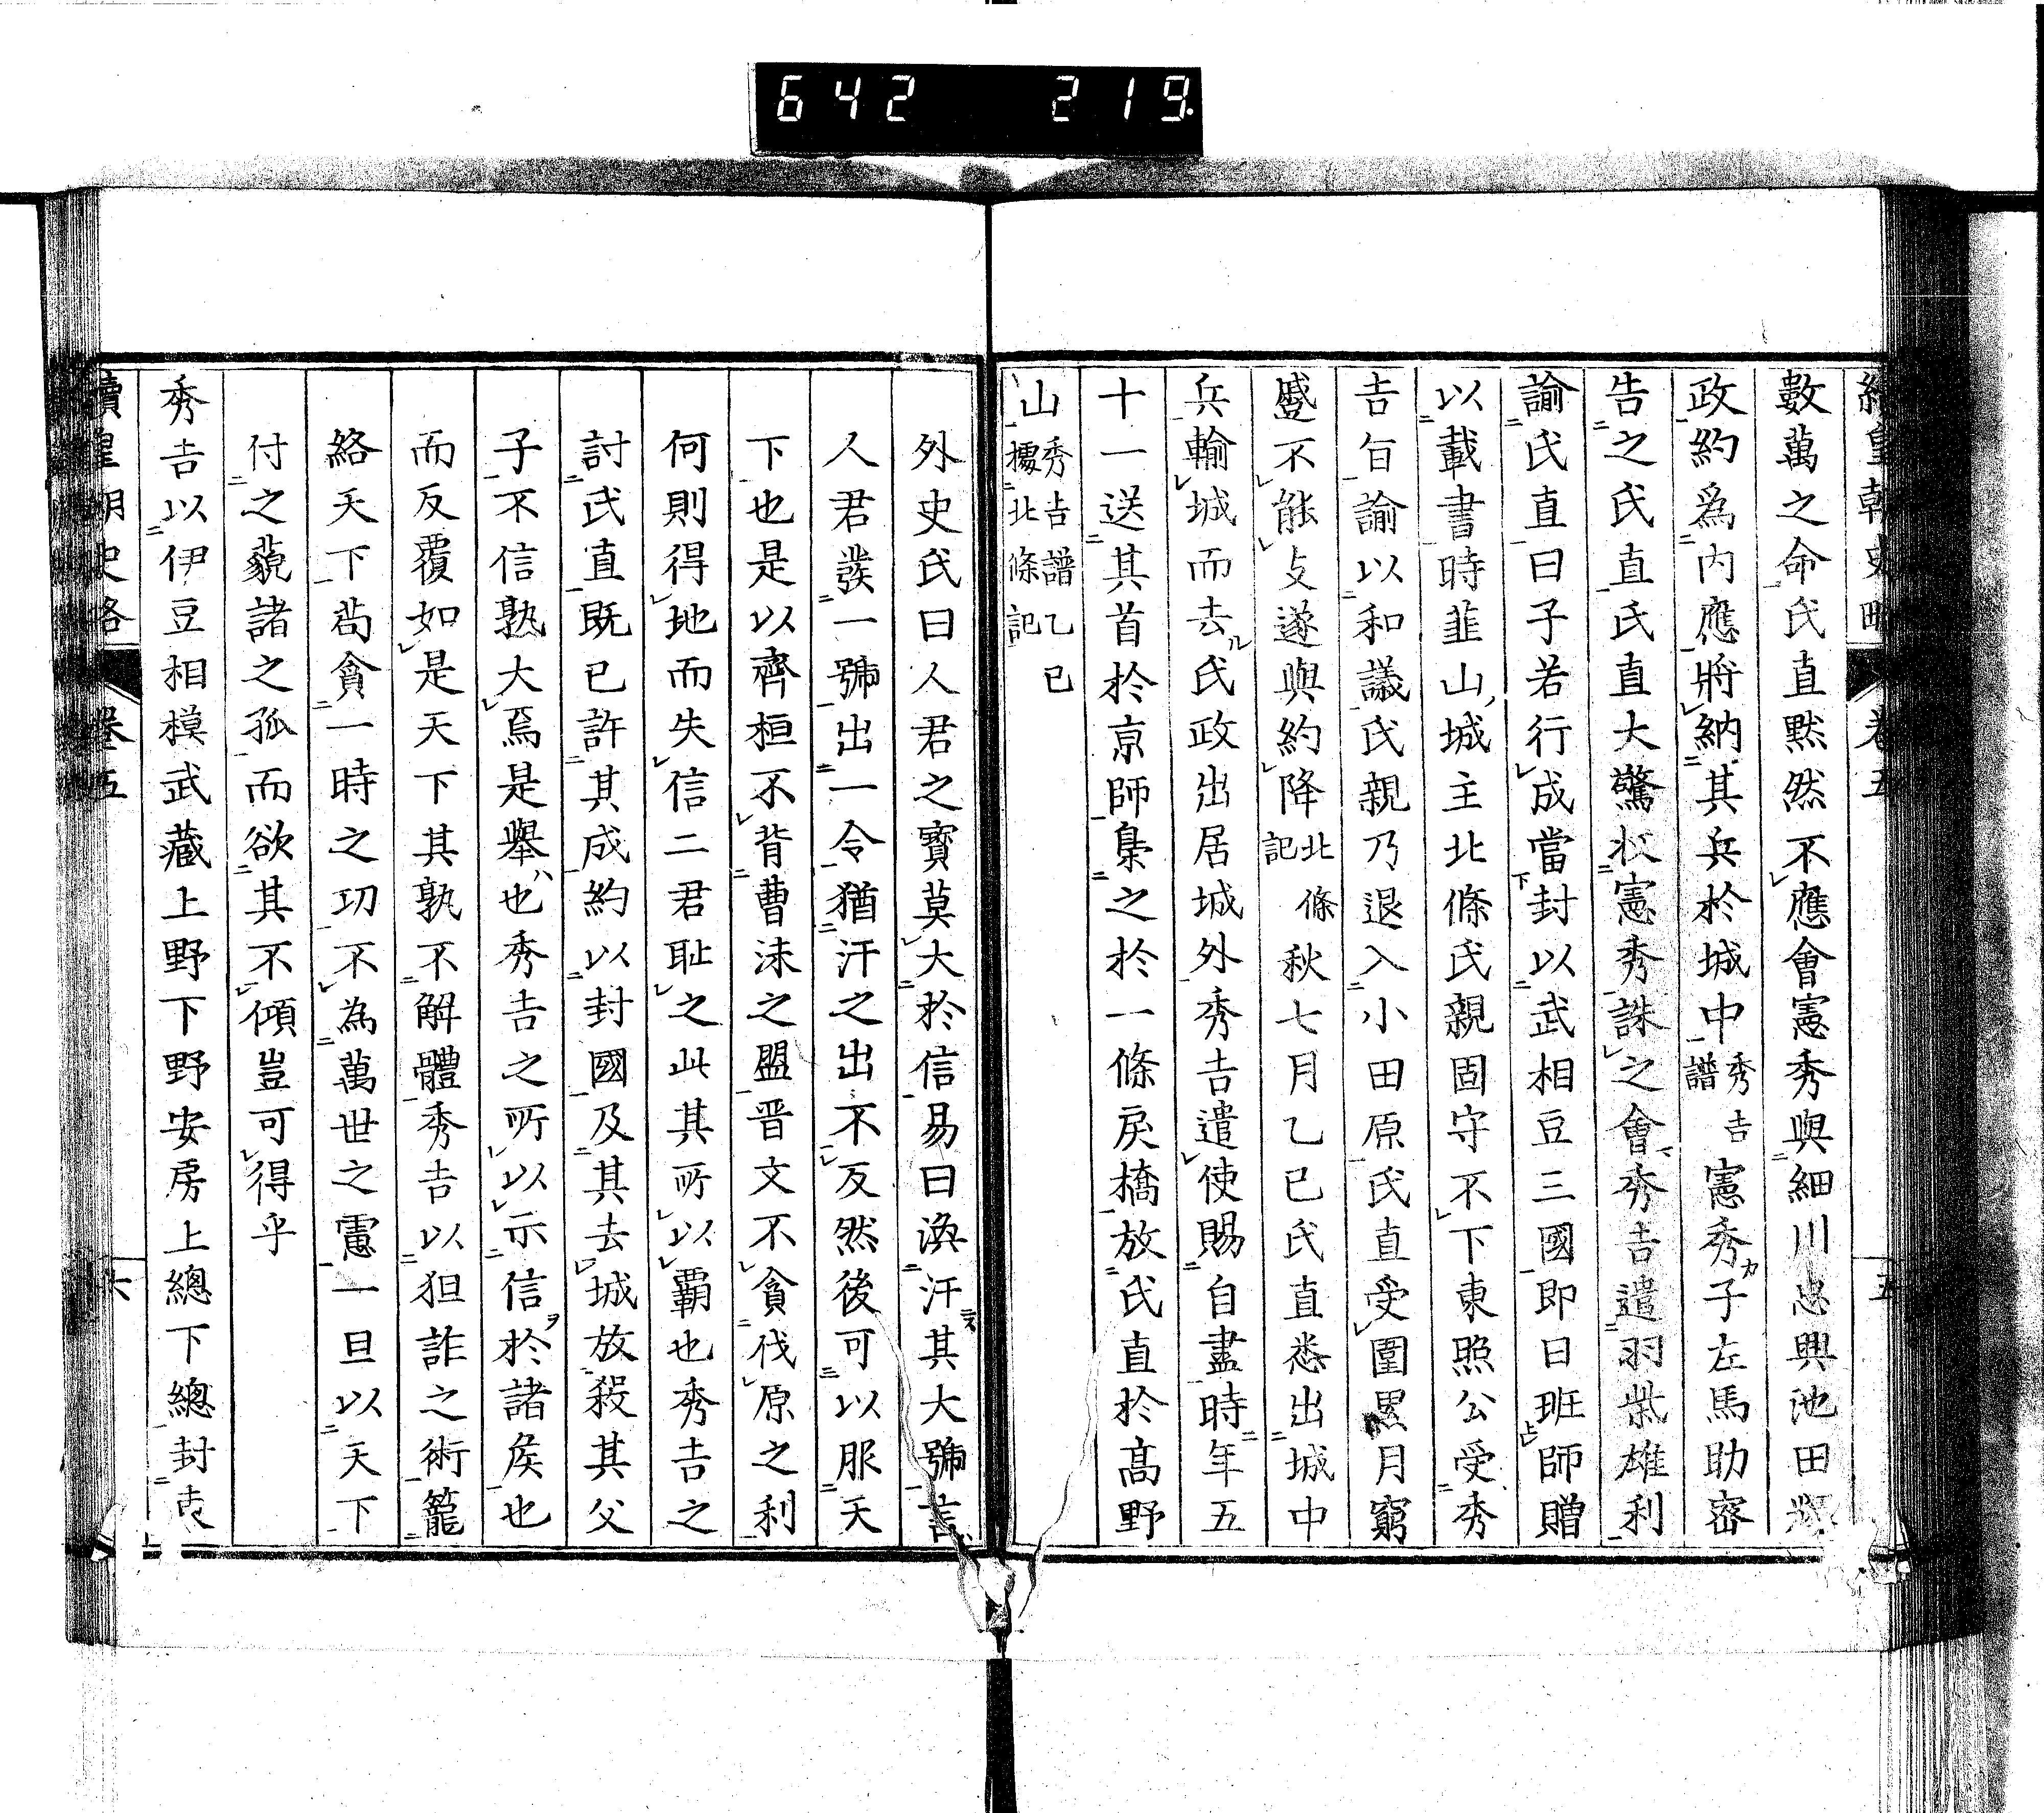 642 219
續皇朝史略 卷五 五
數萬之命氏直默然不應會憲秀與細川忠興池田
政約爲內應將納其兵於城中秀吉譜憲秀子左馬助密
告之氏直氏直大驚收憲秀誅之會秀吉遣羽柴雄利
諭氏直曰子若行成當封以武相豆三國即日班師贈
以載書時韮山城主北條氏親固守不下東照公受秀
吉旨諭以和議氏親乃退入小田原氏直受圍累月窮
蹙不能支遂與約降北條記秋七月乙巳氏直悉出城中
兵輸城而去氏政出居城外秀吉遣使賜自盡時年五
十一送其首於京師梟之於一條戾橋放氏直於高野
山秀吉譜乙巳據北條記
外史氏曰人君之寶莫大於信易曰渙汗其大號言
人君發一號出一令猶汗之出不反然後可以服天
下也是以齊桓不背曹沫之盟晋文不貪伐原之利
何則得地而失信二君耻之此其所以霸也秀吉之
討氏直既已許其成約以封國及其去城放殺其父
子不信孰大焉是舉也秀吉之所以示信於諸侯也
而反覆如是天下其孰不解體秀吉以狙詐之術籠
絡天下苟貪一時之功不為萬世之慮一旦以天下
付之藐諸之孤而欲其不傾豈可得乎
秀吉以伊豆相模武藏上野下野安房上總下總封東
續皇朝史略 卷五 六